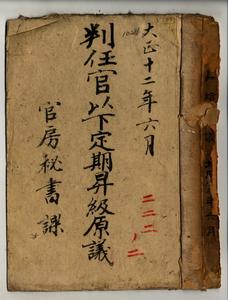 大正十二年六月
判任官以下定期昇級原議
官房秘書課
二二二ノ二